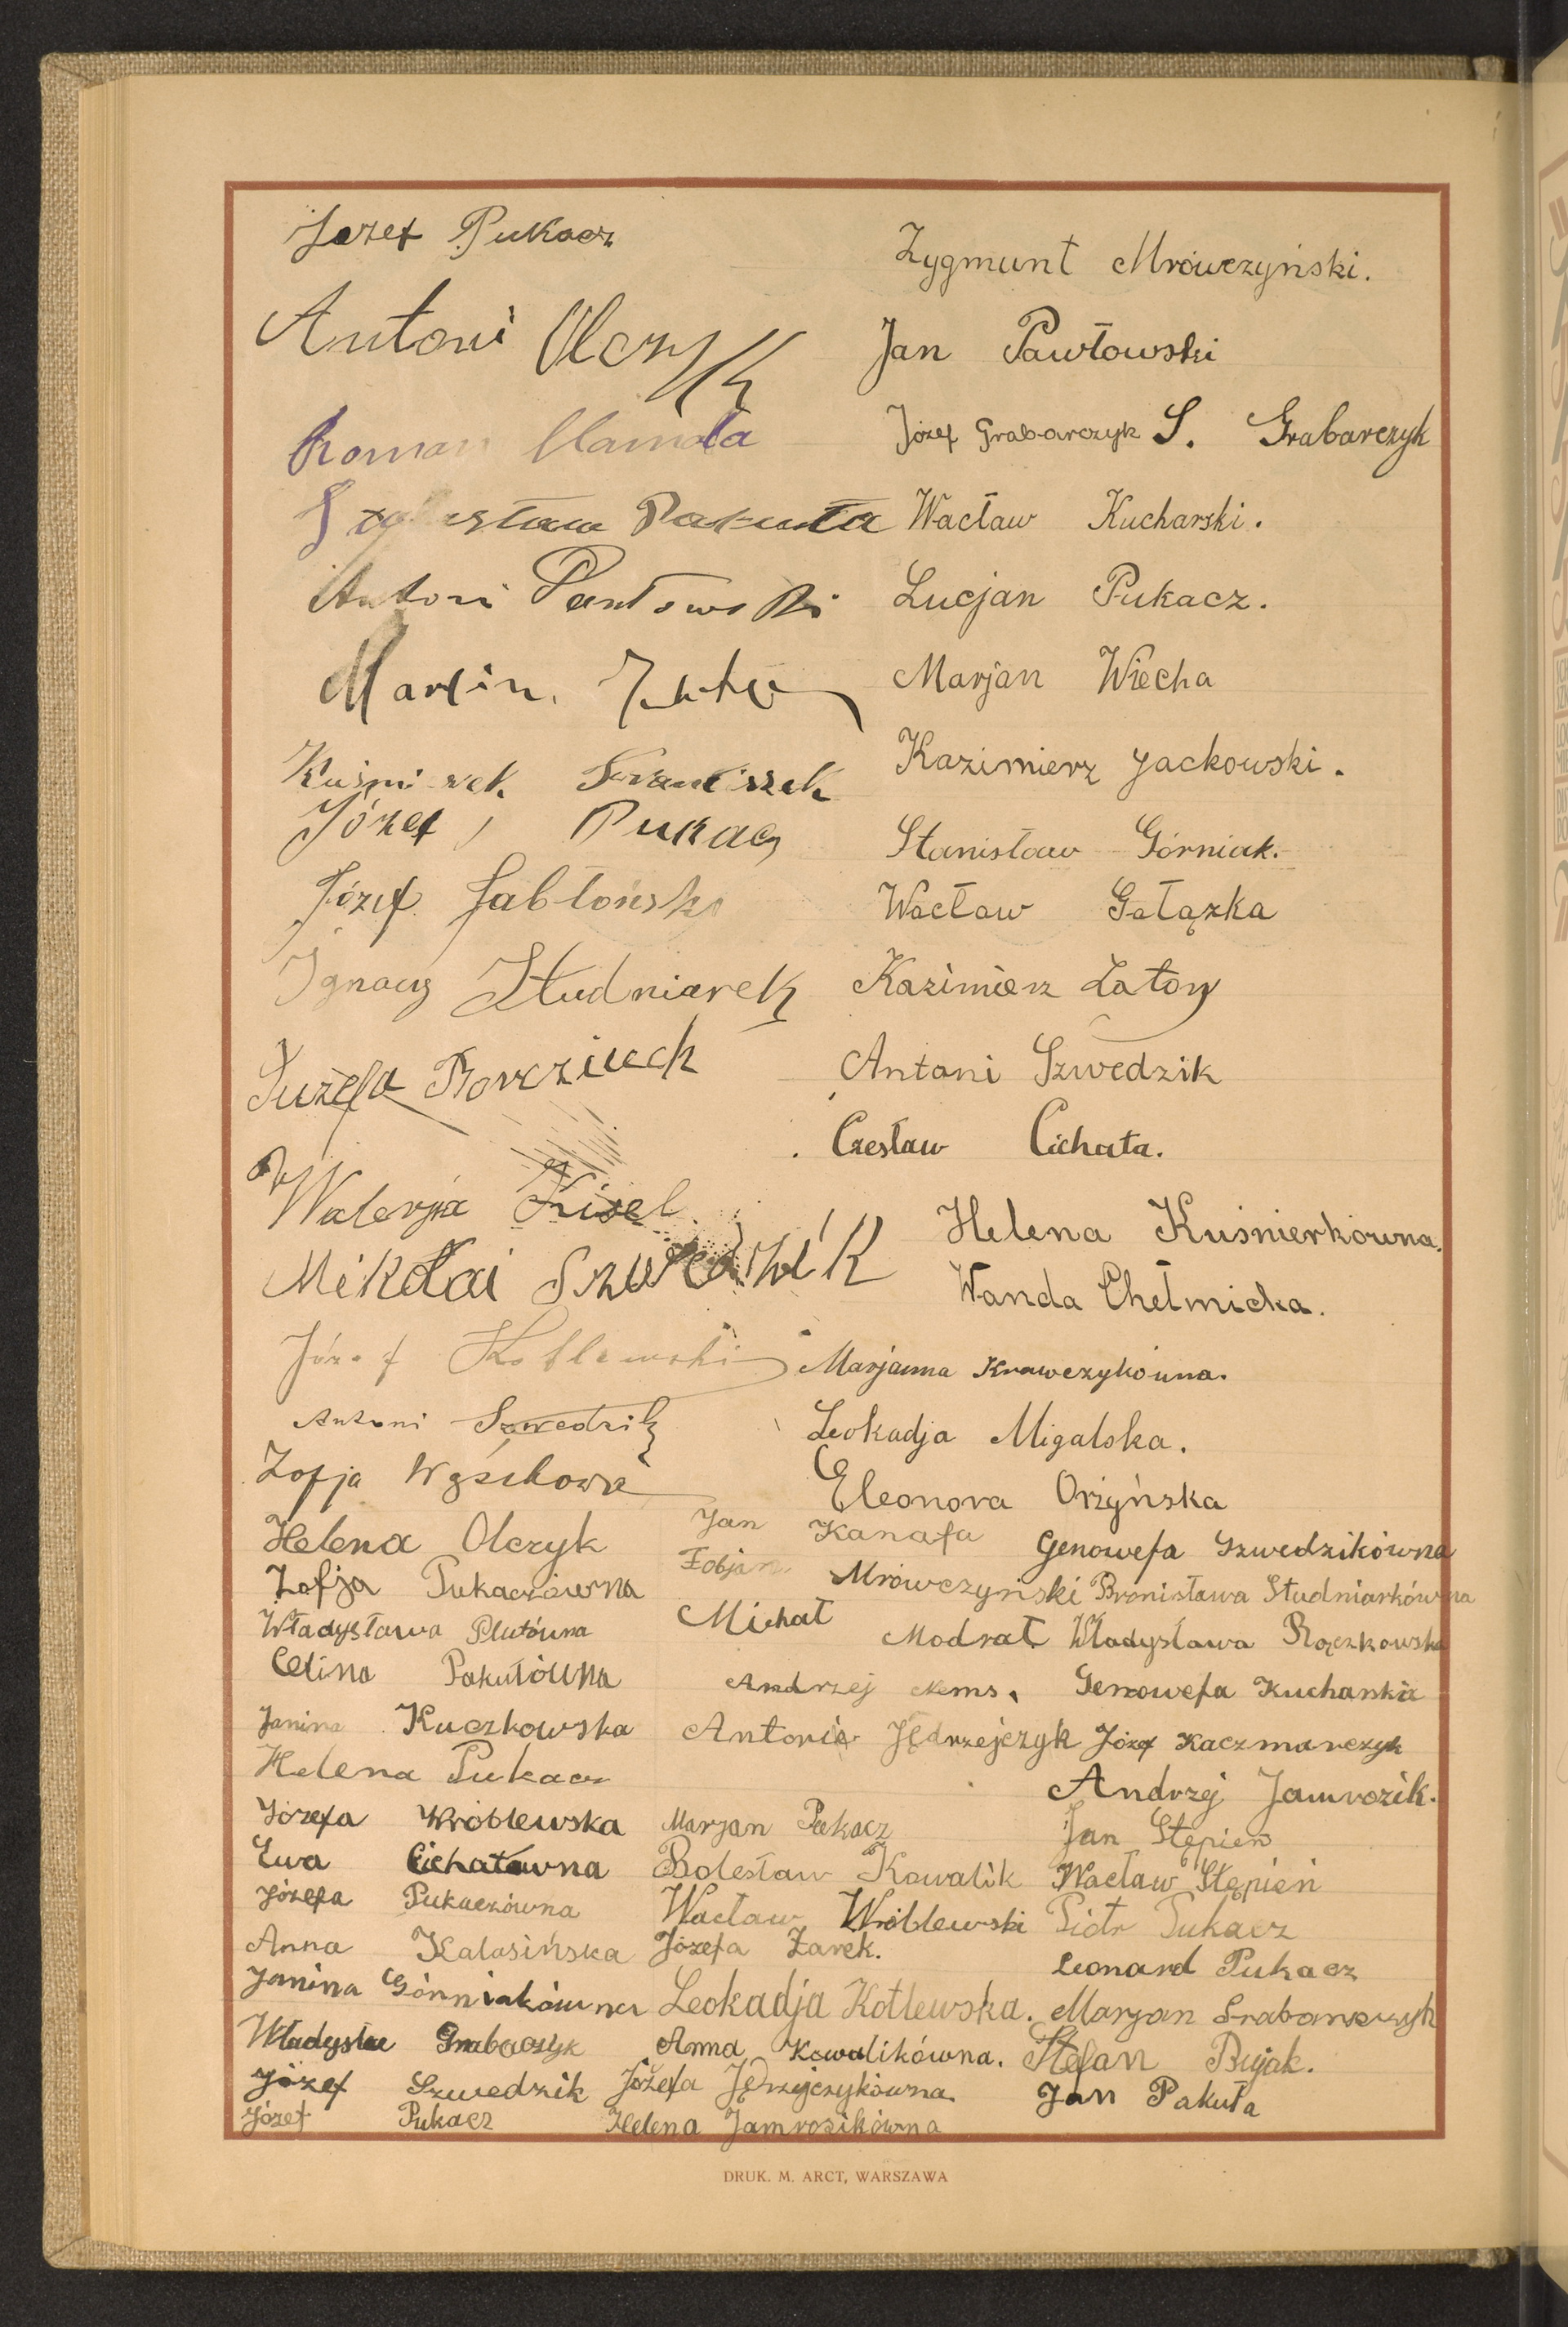 Józef Pukacz
Antoni Olczyk
Roman
Pakuła
Antoni Pawłowski
Marcin
Kuśmirek Franciszek
Józef Pukacz
Józef Jabłoński
Ignacy Studniarek
Walerja Kisel
Mikołai Szwedzik
Józef Kotlewski
Antoni Szwedzik
Zofja
Helena Olczyk
Zofja Pukaczówna
Władysława Plutówna
Celina Pakułówna
Janina Kuczkowska
Helena Pukacz
Józefa Wróblewska
Ewa Cichatówna
Józefa Pukaczówna
Anna Kalasińska
Janina Górniakówna
Grabarczyk
Józef Szwedzik
Józef Pukacz
Zygmunt Mrówczyński.
Jan Pawłowski
Józef Grabarczyk S. Grabarczyk
Wacław Kucharski.
Lucjan Pukacz.
Marjan Wiecha
Kazimierz Jackowski.
Stanisław Górniak.
Wacław Gałązka
Kazimierz Latoy
Antoni Szwedzik
Czesław Cichata.
Helena Kuśnierkówna.
Wanda Chełmicka.
Marjanna Krawczykówna.
Leokadja Migalska.
Eleonora Orżyńska
Jan Kanafa
Fabjan Mrówczyński
Michał Modrat
Andrzej Nems.
Antonie Jędrzejczyk
Marjan Pukacz
Bolesław Kowalik
Wacław Wróblewski
Józefa Żarek.
Leokadja Kotlewska.
Anna Kowalikówna.
Józefa Jędrzejczykówna.
Helena Jamrozikówna
Genowefa Szwedzikówna
Bronisława Studniarkówna
Władysława Rączkowska
Genowefa Kucharska
Józef Kaczmarczyk
Andrzej Jamrozik.
Jan Stępień
Wacław Stępień
Piotr Pukacz
Leonard Pukacz
Marjan Grabarczyk
Stefan Bujak.
Jan Pakuła
DRUK. M. ARCT, WARSZAWA